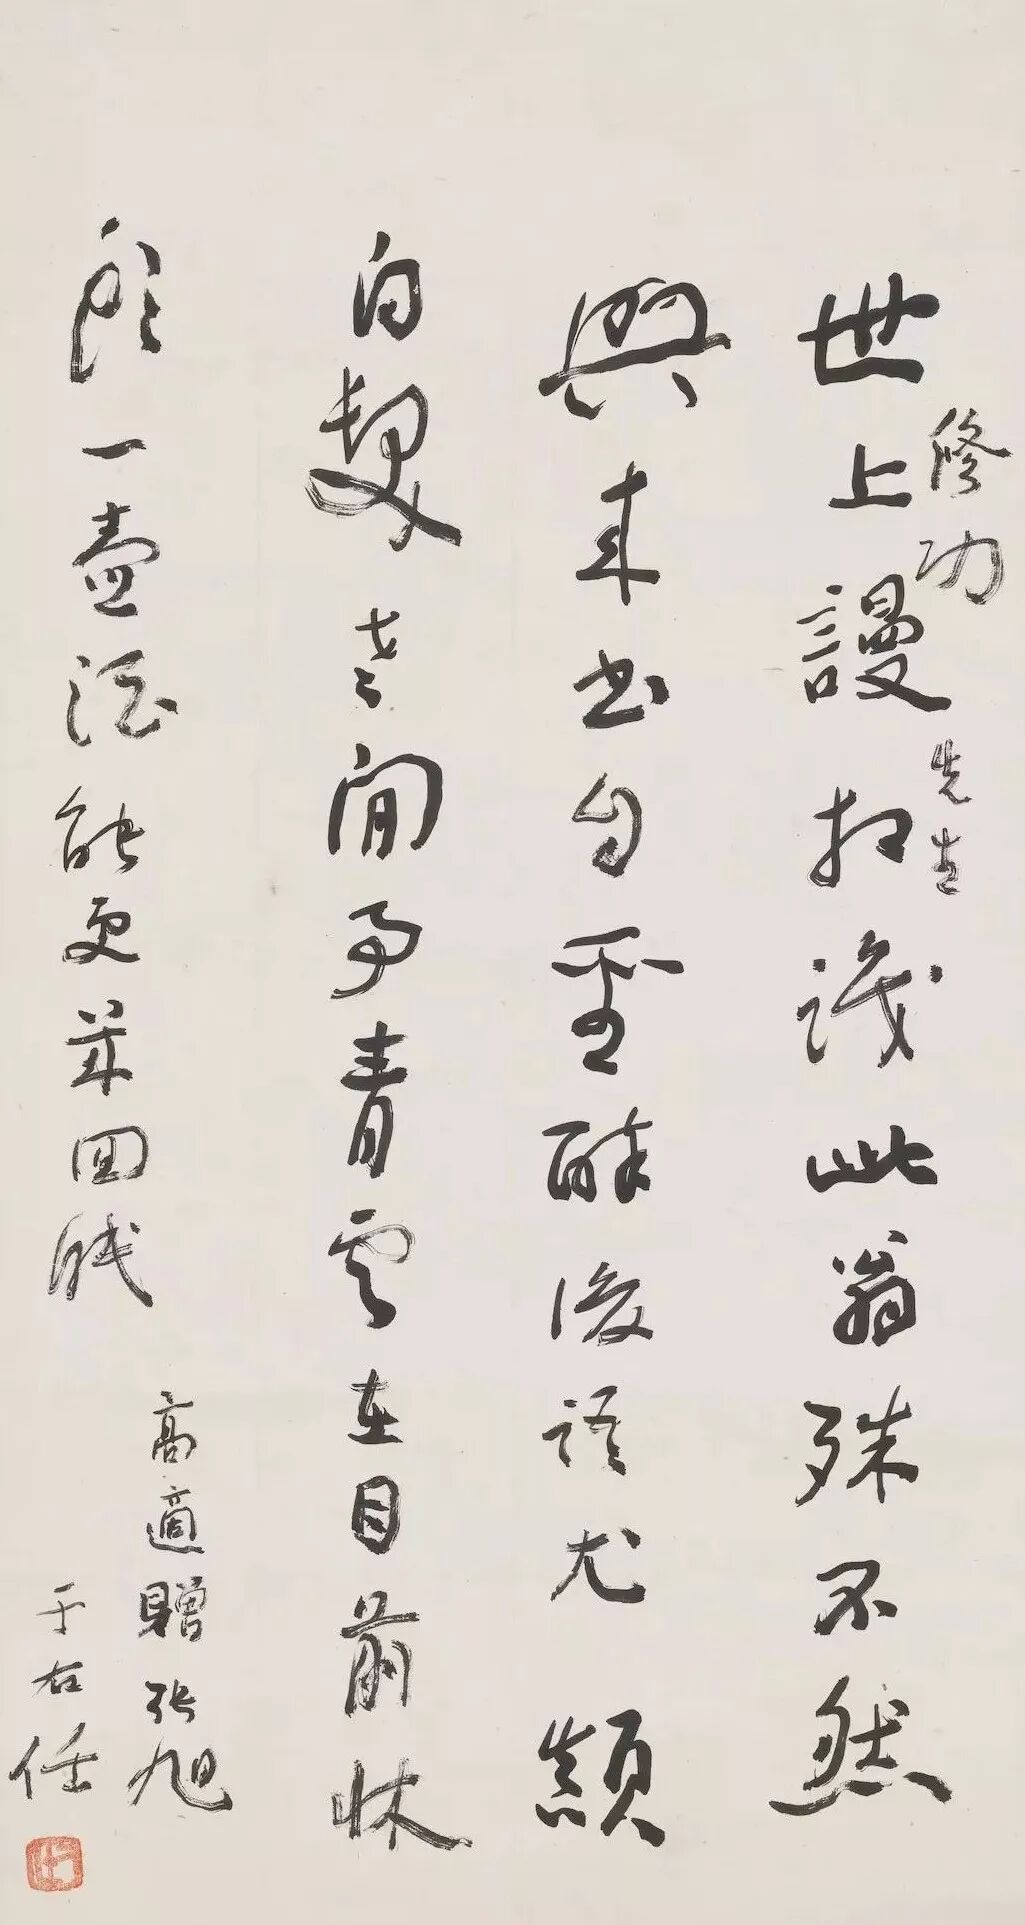 修功先生
世上謾相識此翁殊不然
興來書自聖醉後語尤顛
白髮老閒事青雲在目前牀
頭一壺酒能更幾回眠
高適贈張旭
于右任